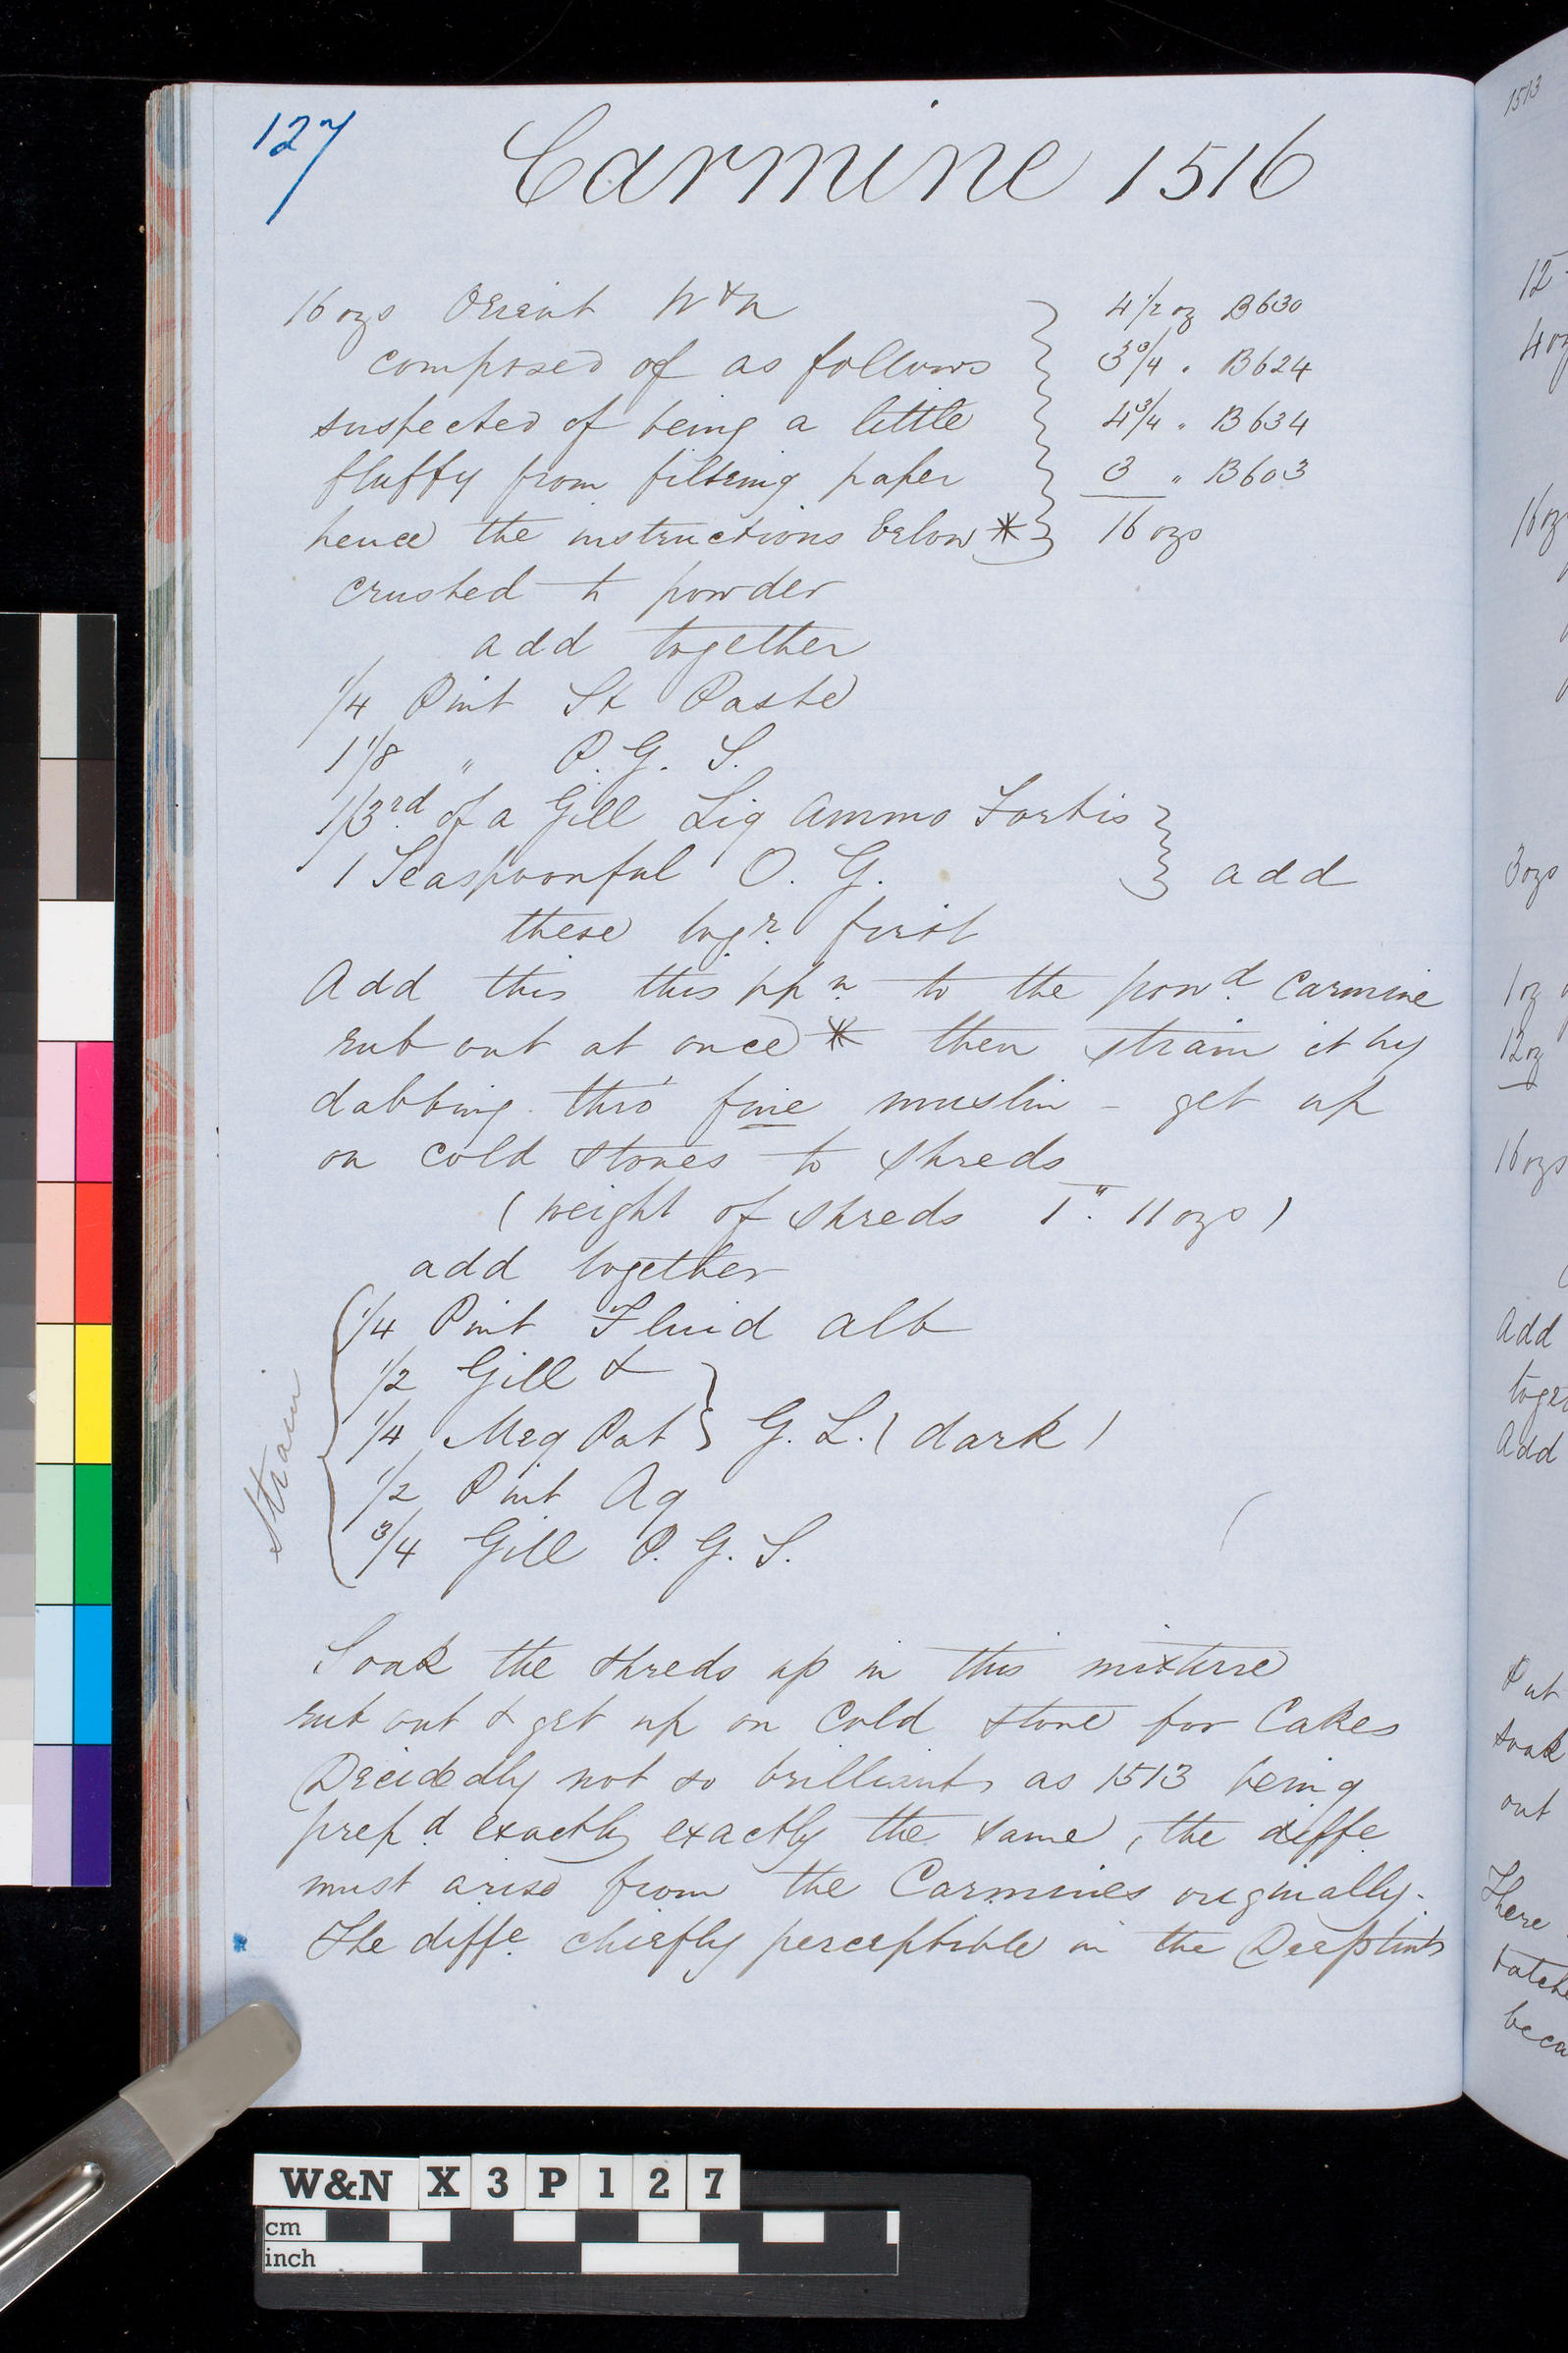 127
Carmine 1516
16 ozs Orient W & N
composed of as follows
suspected of being a little
fluffy from filtering paper
hence the instructions below *
4 1/2 oz B630
3 3/4 " B624
4 3/4 " B634
3 " B603
16 ozs
crushed to powder
add together
1/4 Pint St Paste
1 1/8 " P. G. S.
1/3rd of a Gill Liq Ammo Fortis
1 Teaspoonful O. G. } add
these togr. first
Add this this ppn to the powd. Carmine
rub out at once * then strain it by
dabbing thro' fine muslin - get up
on cold stones to shreds
(weight of shreds 1" . 11 ozs)
add together
1/4 Pint Fluid Alb
1/2 Gill &
1/4 Meg Pot } G. L. (dark)
1/2 Pint Aq
3/4 Gill P. G. S.
Strain
Soak the shreds up in this mixture
rub out & get up on Cold stone for Cakes
Decidedly not so brilliant, as 1513 being
prepd. exactly exactly the same, the diffe
must arise from the Carmines originally.
The diffe. chiefly perceptible in the Deep tints
1513
12
4 oz
16 oz
3 ozs
1 oz
12 oz
16 ozs
Add
toge
Add
Put
soak
out
There
batche
beca
W&N X 3 P 1 2 7
cm
inch